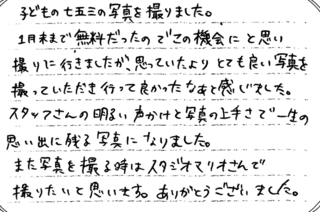 子どもの七五三の写真を撮りました。
1月末まで無料だったのでこの機会にと思い
撮りに行きましたが、思っていたよりとても良い写真を
撮っていただき行って良かったなあと感じました。
スタッフさんの明るい声かけと写真の上手さで一生の
思い出に残る写真になりました。
また写真を撮る時はスタジオマリオさんで
撮りたいと思います。ありがとうございました。